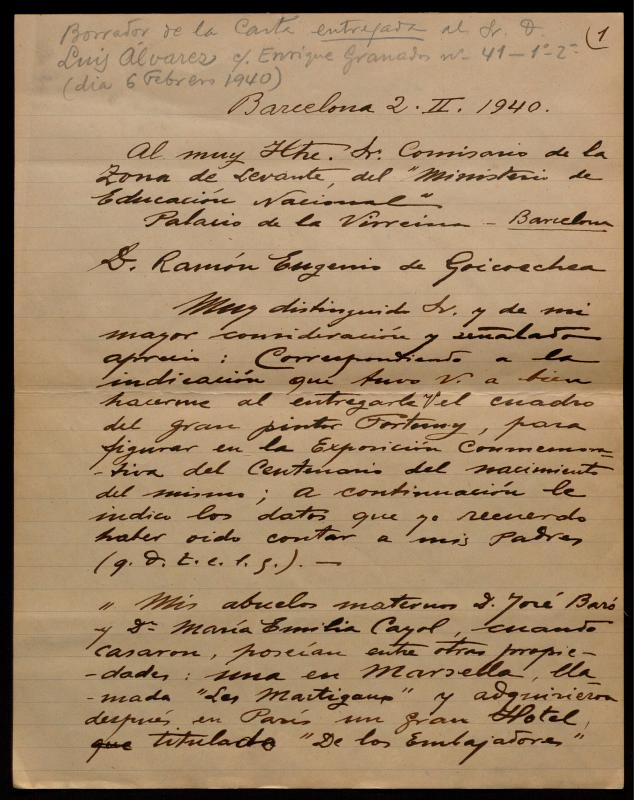 Borrador de la Carta entregada al Sr. D.
(1
Luis Álvarez c/. Enrique Granados nº 41 – 1º - 2ª
(dia 6 Febrero 1940)
Barcelona 2. II. 1940.
Al muy Iltre. Sr. Comisario de la
Zona de Levante, del "Ministerio de
Educación Nacional"
Palacio de la Virreina – Barcelona
D. Ramón Eugenio de Goicoechea
Muy distinguido Sr. y de mi
mayor consideración y señalado
aprecio: Correspondiendo a la
indicación que tuvo V. a bien
hacerme al entregarle el cuadro
del gran pintor Fortuny, para
figurar en la Exposición Conmemora-
-tiva del Centenario del nacimiento
del mismo; a continuación le
indico los datos que yo recuerdo
haber oido contar a mis Padres
(q. d. t. e. l. g.). —
" Mis abuelos maternos D. José Baró
y Dª María Emilia Cayol, cuando
casaron, poseían entre otras propie-
-dades: una en Marsella, lla-
-mada "Les Martigaux" y adquirieron
después en París un gran Hotel,
que titulado "De los Embajadores"